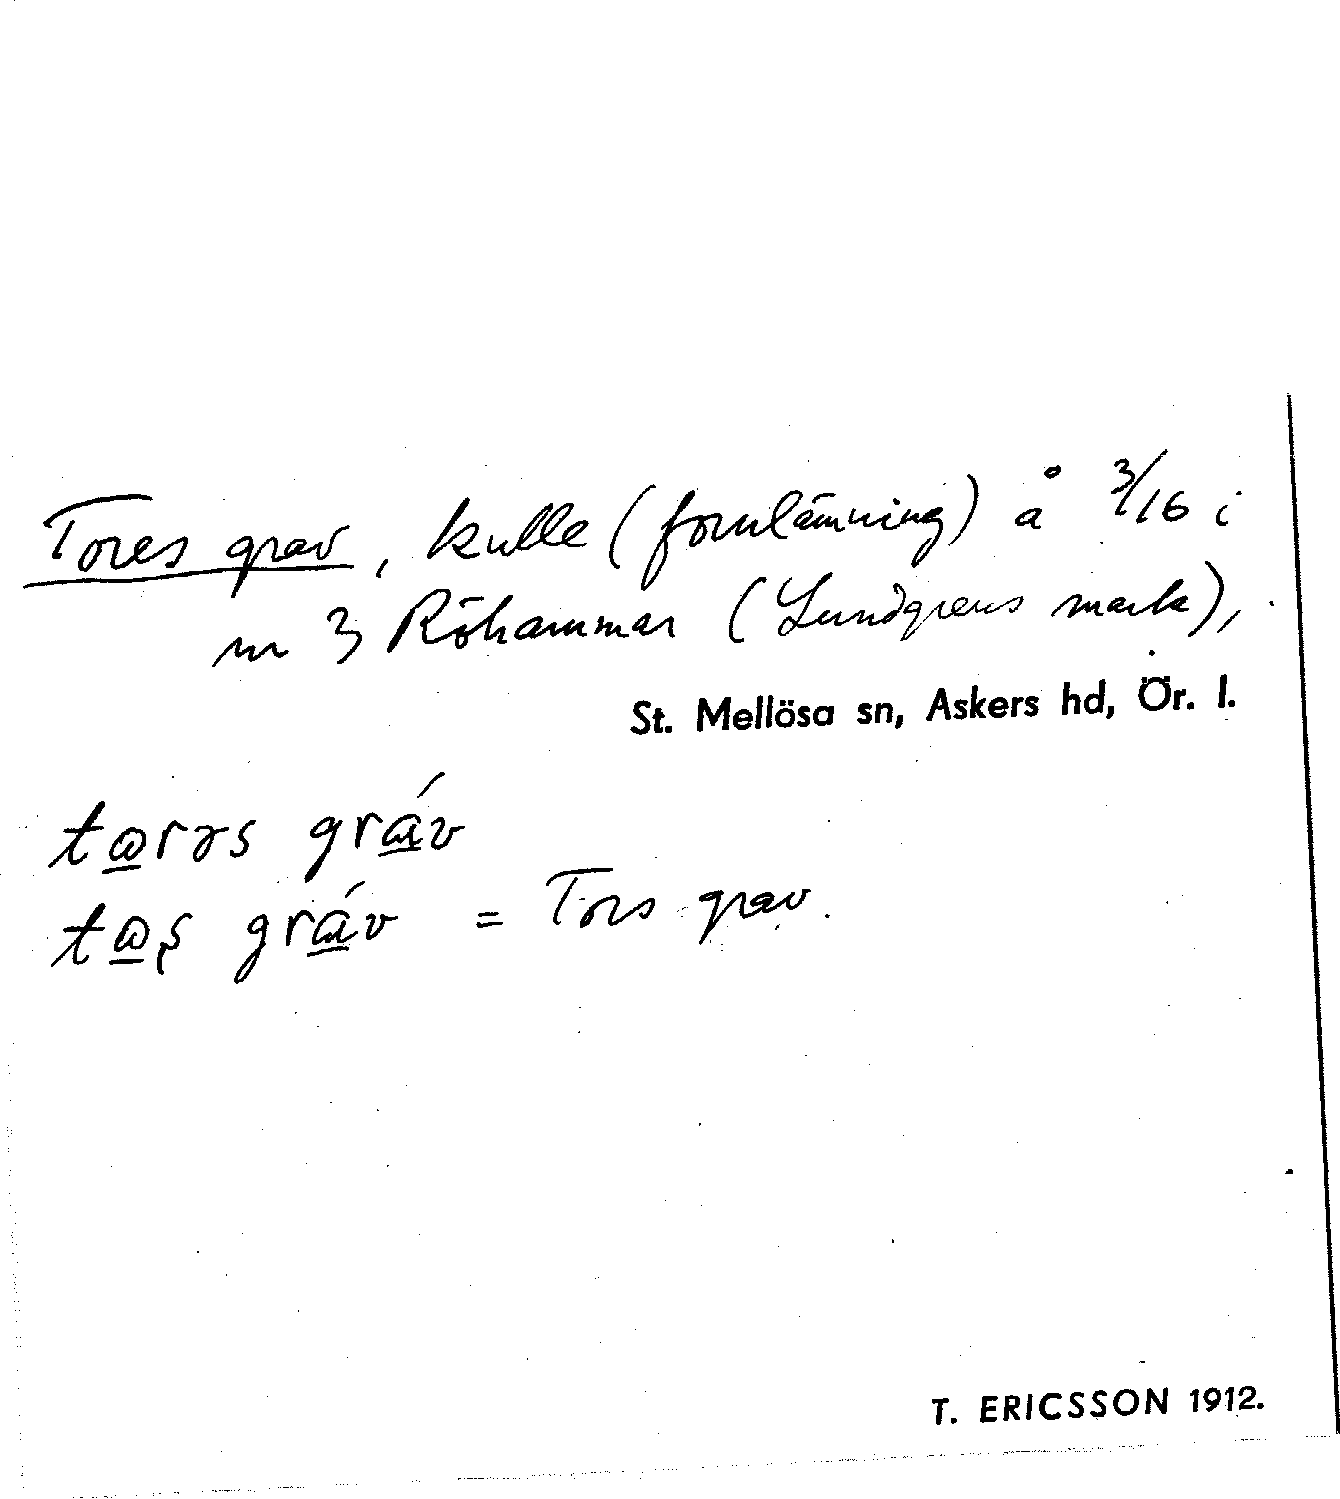 Tores grav, kulle (fornlämning) å 3/16 i
nr 3 Röhammar (Lundgrens mark),
St. Mellösa sn, Askers hd, Ör. l.
tωrəs grɑ́v
tωş grɑ́v = Tors grav.
T. ERICSSON 1912.